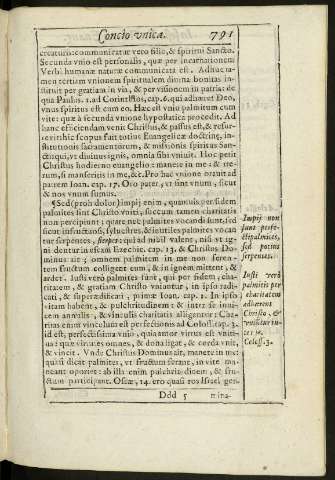 Concio vnica. 791
creaturis: communicatur vero filio, & spiritui Sancto.
Secunda vnio est personalis, quæ per incarnationem
Verbi humanæ naturæ communicata est. Adhuc ta-
men tertiam vnionem spiritualem diuina bonitas in-
stituit per gratiam in via, & per visionem in patria: de
qua Paulus. 1. ad Corinthios, cap. 6. qui adhæret Deo,
vnus spiritus est cum eo. Hæc est vnio palmitum cum
vite: quæ à secunda vnione hypostatice procedit. Ad
hanc efficiendam venit Christus, & passus est, & resur-
rexit: hic scopus fuit totius Euangelicæ doctrinæ, in-
stitutionis sacramentorum, & missionis spiritus San-
cti: qui, vt diuinus ignis, omnia sibi vniuit. Hoc petit
Christus hodierno euangelio: manete in me: & ite-
rum, si manseritis in me, &c. Pro hac vnione orauit ad
patrem Ioan. cap. 17. Oro pater, vt sint vnum, sicut
& nos vnum sumus.
¶ Sed (proh dolor) impij enim, quamuis per fidem
palmites sint Christo vniti, succum tamen charitatis
non percipiunt; quare non palmites conuincti sunt, sed
sicut infructuosi, sylvestres, & inutiles palmites vocan
tur serpentes, qui ad nihil valent, nisi vt i-
gni dentur in escam Ezechie. cap. 15. & Christus Do-
minus ait; omnem palmitem in me non feren-
tem fructum colliget eum, & in ignem mittent, &
ardet. Iusti vero palmites sunt, qui per fidem, cha-
ritatem, & gratiam Christo vniuntur, in ipso radi-
cati, & superædificati, primæ Ioan. cap. 1. In ipso
vitam habent, & pulchritudinem: & inter se inui-
cem annulis, & vinculis charitatis alligentur: Cha-
ritas enim vinculum est perfectionis ad Coloss. cap. 3.
id est, perfectissima vnio, quia amor virtus est vniti-
ua: quæ virtutes omnes, & dona ligat, & corda vnit,
& vincit. Vnde Christus Dominus ait, manete in me:
quasi dicat palmites, vt fructum ferant, in vite ma-
neant oportet: ab illa enim pulchritudinem, & fru-
ctum participant. Oseæ, 14. ero quasi ros Israel ger-
Ddd 5 mina-
Impij non
sunt perfe-
cti palmites,
sed potius
serpentes.
Iusti verò
palmites per
charitatem
adhærent
Christo, &
vniuntur in-
ter se.
Coloss. 3.